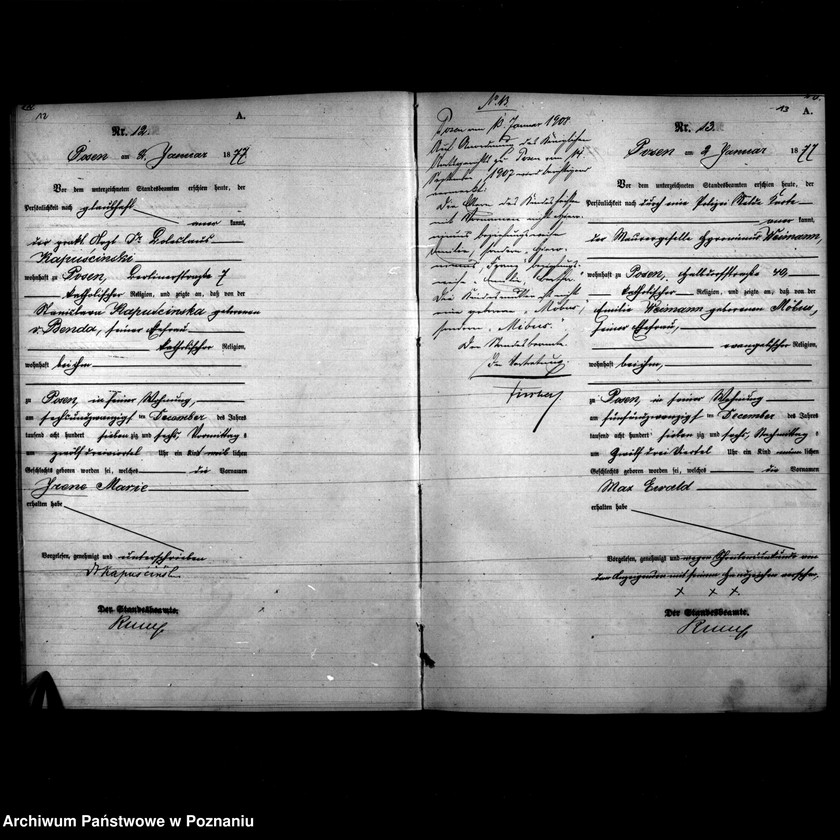 12
A.
Nr. 12.
Posen am 2. Januar 1877
Vor dem unterzeichneten Standesbeamten erschien heute, der
Persönlichkeit nach glaubhaft
kannt,
der prakt. Arzt Dr. Boleslaus
Kapuściński
wohnhaft zu Posen, Berlinerstraße 7
katholischer Religion, und zeigte an, daß von der
Stanislawa Kapuścinska geborenen
v. Benda, seiner Ehefrau
katholischer Religion,
wohnhaft bei ihm
zu Posen, in seiner Wohnung,
am sechsundzwanzigsten December des Jahres
tausend acht hundert siebenzig und sechs, Vormittags
um zwölf dreiviertel Uhr ein Kind weiblichen
Geschlechts geboren worden sei, welches die Vornamen
Irene Marie
erhalten habe
Vorgelesen, genehmigt und unterschrieben
Dr Kapuściński
Der Standesbeamte.
No 13
Posen am 13. Januar 1908
Auf Anordnung des Königlichen
Amtsgerichts zu Posen vom 14.
September 1907 wird berichtigend
vermerkt:
Die Eltern des Kindes heißen
mit Vornamen nicht
beziehungsweise
Emilie, sondern
Die Kindesmutter ist nicht
eine geborene "Möbus",
sondern "Mibus".
Der Standesbeamte
In Vertretung
13
A.
Nr. 13.
Posen am 2 Januar 1877
Vor dem unterzeichneten Standesbeamten erschien heute, der
Persönlichkeit nach durch eine Polizei
kannt,
der Maurergeselle Hyronimus Weimann,
wohnhaft zu Posen, Halbdorfstraße 40,
katholischer Religion, und zeigte an, daß von der
Emilie Weimann geborenen Möbus,
seiner Ehefrau,
evangelischer Religion,
wohnhaft bei ihm,
zu Posen, in seiner Wohnung
am fünfundzwanzigsten December des Jahres
tausend acht hundert siebenzig und sechs, Nachmittags
um zwölf drei Viertel Uhr ein Kind männlichen
Geschlechts geboren worden sei, welches die Vornamen
Max Ewald
erhalten habe
Vorgelesen, genehmigt und wegen Schreibensunkunde von
dem Anzeigenden mit seinem Handzeichen versehen,
x x x
Der Standesbeamte.
Archiwum Państwowe w Poznaniu